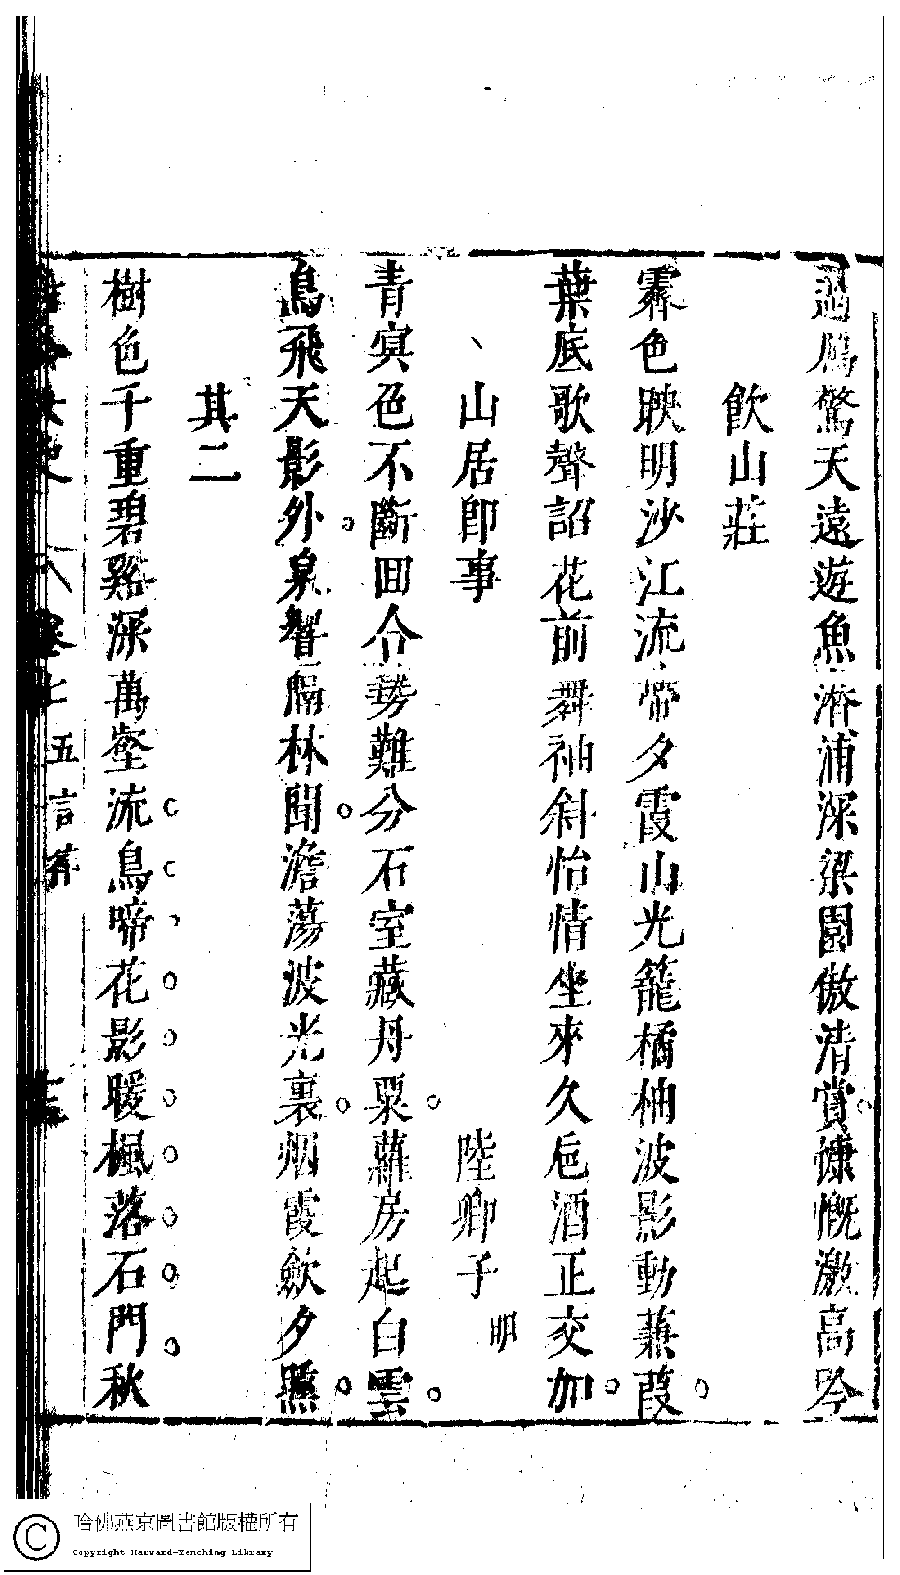 過鳫驚天遠遊魚濟浦深梁園傲清賞慷慨激高吟
飲山莊
霽色映明沙江流帶夕霞山光籠橘柚波影動蒹葭
葉底歌聲詔花前舞袖斜怡情坐來久巵酒正交加
山居即事 陸卿子 明
青㝠色不斷回合勢難分石室藏丹粟蘿房起白雲
鳥飛天影外泉響隔林聞澹蕩波光裏烟霞斂夕曛
其二
樹色千重碧谿深萬壑流鳥啼花影暖楓落石門秋
卷七 五言律
哈佛燕京圖書館版權所有
Copyright Harvard-Yenching Library